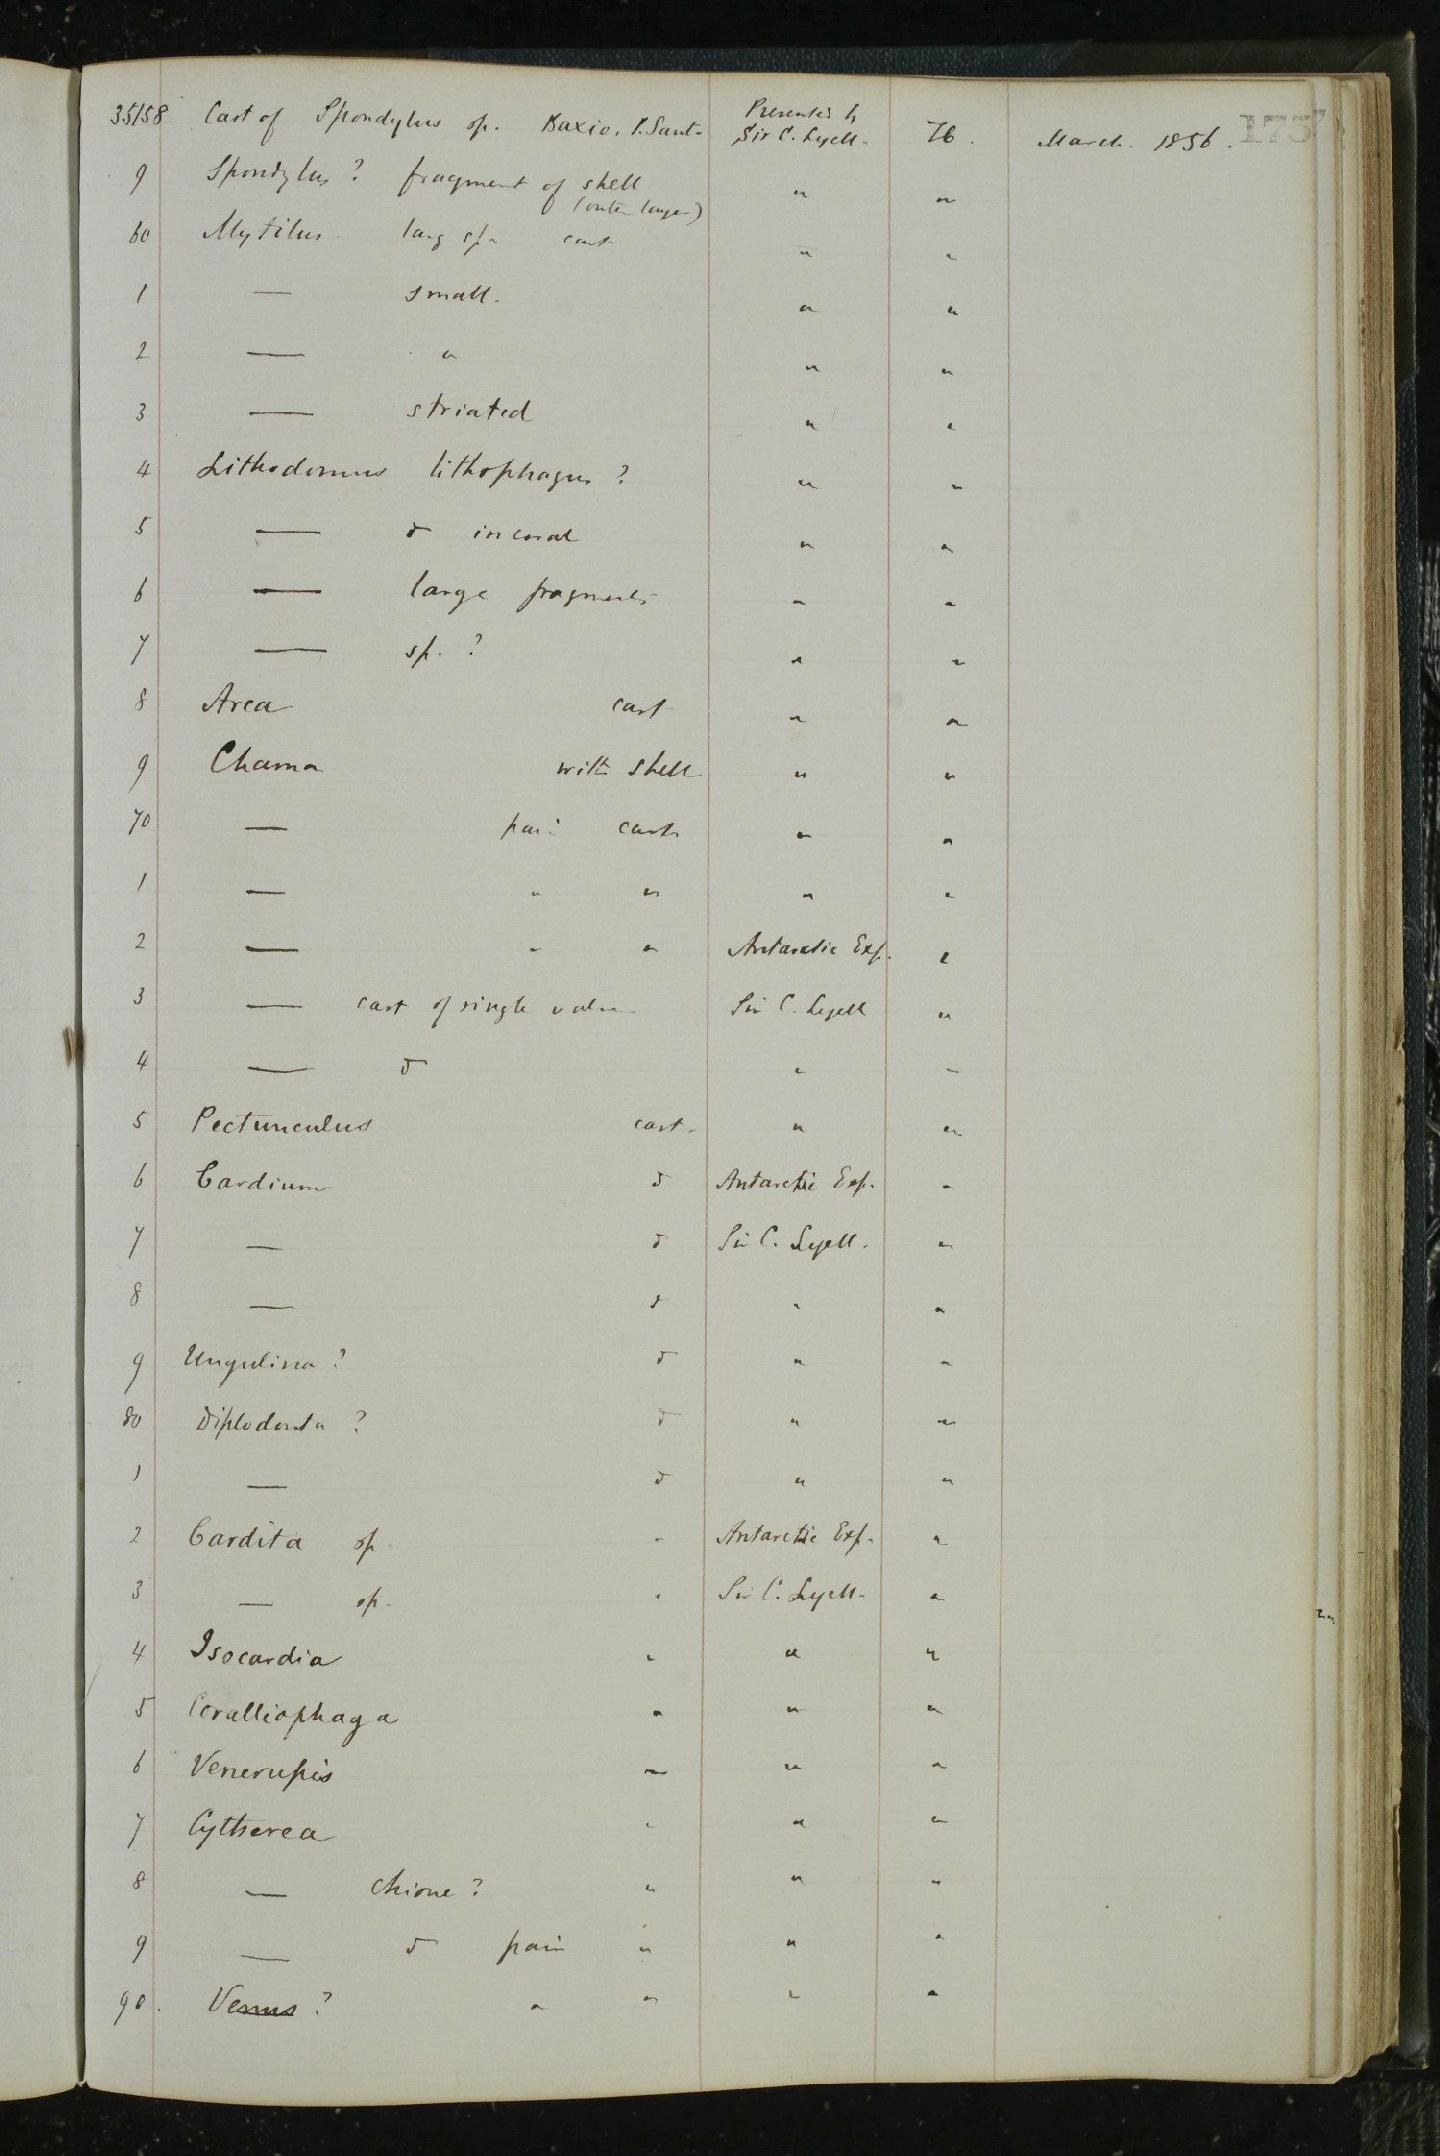 175
35158 Cast of Spondylus sp. Baxio. P. Santo Presented by Sir C. Lyell. Tb. March. 1856.
9 Spondylus ? fragment of shell (outer layer) " "
60 Mytilus larg spn cast " "
1 — small. " "
2 — " " "
3 — striated " "
4 Lithodomus lithophagus ? " "
5 — do in coral " "
6 — large fragments " "
7 — sp. ? " "
8 Arca cast " "
9 Chama with shell " "
70 — pair casts " "
1 — " " " "
2 — " " Antarctic Exp. "
3 — cast of single valve. Sir C. Lyell "
4 — do " "
5 Pectunculus cast. " "
6 Cardium do Antarctic Exp. "
7 — do Sir C. Lyell. "
8 — do " "
9 Ungulina ? do " "
80 Diplodonta ? do " "
1 — do " "
2 Cardita sp. " Antarctic Exp. "
3 — sp. " Sir C. Lyell. "
4 Isocardia " " "
5 Coralliophaga " " "
6 Venerupis " " "
7 Cytherea " " "
8 — chione ? " " "
9 — do pair " " "
90. Venus ? " " " "